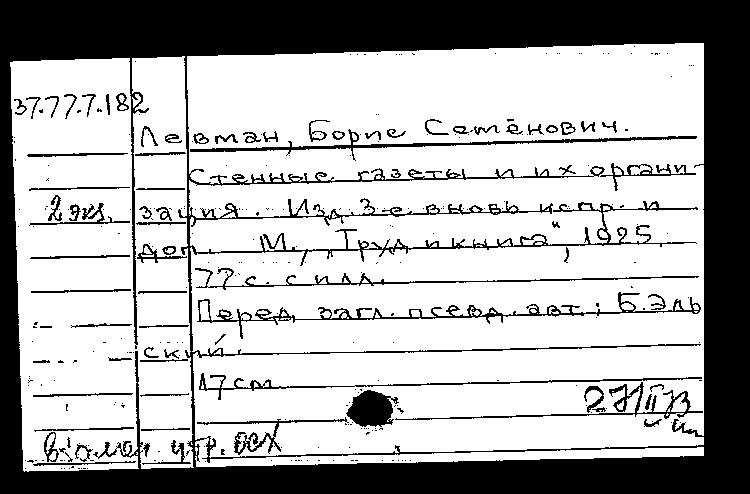 37.77.7.182
Левман, Борис Семёнович.
Стенные газеты и их органи-
2 экз. зация. Изд. 3-е вновь испр. и
доп. М., „Труд и книга“, 1925.
77 с. с илл.
Перед загл. псевд. авт.: Б. Эль
ский.
17 см
27/II 73
утр. осх